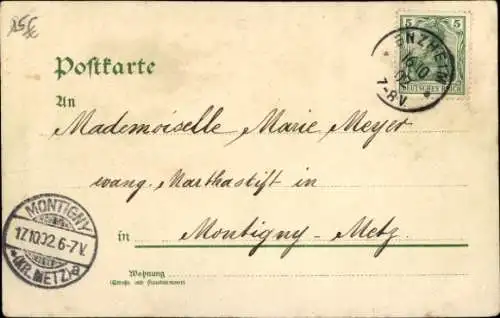 5 5
DEUTSCHES REICH
NZHEIM
16/10
02
7-8V
Postkarte
An
Mademoiselle Marie Meyer
wang. Marthastift in
in Montigny - Metz.
MONTIGNY
17.10.02.6-7V.
*(KR. METZ)a
Wohnung
(Straße und Hausnummer)